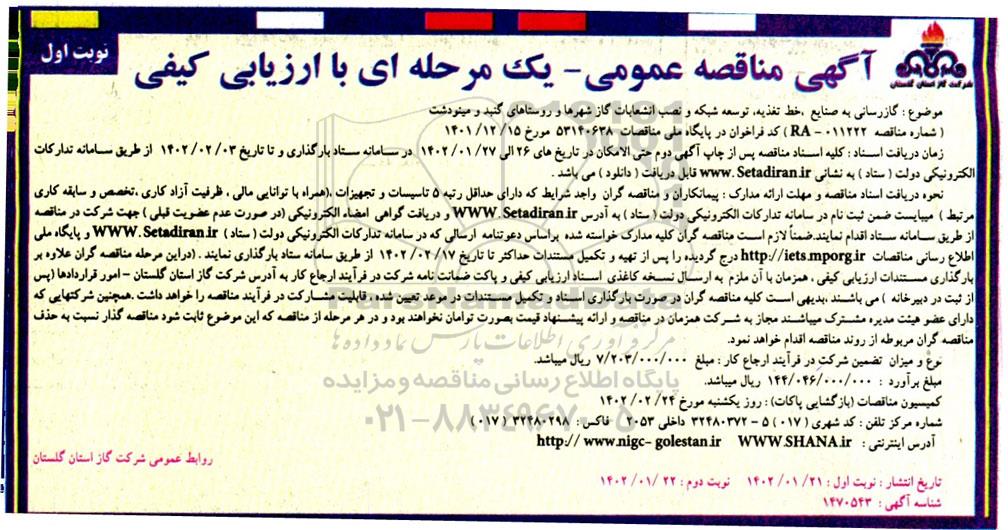 نوبت اول
شرکت گاز استان گلستان
آگهی مناقصه عمومی- یک مرحله ای با ارزیابی کیفی
موضوع : گازرسانی به صنایع ،خط تغذیه، توسعه شبکه و نصب انشعابات گاز شهرها و روستاهای گنبد و مینودشت
( شماره مناقصه RA – ۰۱۱۲۲۲ ) کد فراخوان در پایگاه ملی مناقصات ۵۳۱۴۰۶۳۸ مورخ ۱۴۰۱/۱۲/۱۵
زمان دریافت اسناد : کلیه اسناد مناقصه پس از چاپ آگهی دوم حتی الامکان در تاریخ های ۲۶ الی ۱۴۰۲/۰۱/۲۷ در سامانه ستاد بارگذاری و تا تاریخ ۱۴۰۲/۰۲/۰۳ از طریق سامانه تدارکات
الکترونیکی دولت ( ستاد ) به نشانی www. Setadiran.ir قابل دریافت ( دانلود ) می باشد .
نحوه دریافت اسناد مناقصه و مهلت ارائه مدارک : پیمانکاران و مناقصه گران واجد شرایط که دارای حداقل رتبه ۵ تاسیسات و تجهیزات ،(همراه با توانایی مالی ، ظرفیت آزاد کاری ،تخصص و سابقه کاری
مرتبط ) میبایست ضمن ثبت نام در سامانه تدارکات الکترونیکی دولت ( ستاد ) به آدرس WWW. Setadiran.ir و دریافت گواهی امضاء الکترونیکی (در صورت عدم عضویت قبلی ) جهت شرکت در مناقصه
از طریق سامانه ستاد اقدام نمایند.ضمناً لازم است مناقصه گران کلیه مدارک خواسته شده براساس دعوتنامه ارسالی که در سامانه تدارکات الکترونیکی دولت ( ستاد ) WWW. Setadiran.ir و پایگاه ملی
اطلاع رسانی مناقصات http://iets.mporg.ir درج گردیده را پس از تهیه و تکمیل مستندات حداکثر تا تاریخ ۱۴۰۲/۰۲/۱۷ از طریق سامانه ستاد بارگذاری نمایند . (دراین مرحله مناقصه گران علاوه بر
بارگذاری مستندات ارزیابی کیفی ، همزمان با آن ملزم به ارسال نسخه کاغذی اسناد ارزیابی کیفی و پاکت ضمانت نامه شرکت در فرآیند ارجاع کار به آدرس شرکت گاز استان گلستان – امور قراردادها (پس
از ثبت در دبیرخانه ) می باشند .بدیهی است کلیه مناقصه گران در صورت بارگذاری اسناد و تکمیل مستندات در موعد تعیین شده ، قابلیت مشارکت در فرآیند مناقصه را خواهد داشت .همچنین شرکتهایی که
دارای عضو هیئت مدیره مشترک میباشند مجاز به شرکت همزمان در مناقصه و ارائه پیشنهاد قیمت بصورت توامان نخواهند بود و در هر مرحله از مناقصه که این موضوع ثابت شود مناقصه گذار نسبت به حذف
مناقصه گران مربوطه از روند مناقصه اقدام خواهد نمود.
نوع و میزان تضمین شرکت در فرآیند ارجاع کار : مبلغ ۷/۲۰۳/۰۰۰/۰۰۰ ریال میباشد.
مبلغ برآورد : ۱۴۴/۰۴۶/۰۰۰/۰۰۰ ریال میباشد.
کمیسیون مناقصات (بازگشایی پاکات) : روز یکشنبه مورخ ۱۴۰۲/۰۲/۲۴
شماره مرکز تلفن : کد شهری ( ۰۱۷ ) ۵ – ۳۲۴۸۰۳۷۲ داخلی ۲۰۵۳ فاکس : ۳۲۴۸۰۲۹۸ ( ۰۱۷ )
آدرس اینترنتی : WWW.SHANA.ir http:// www.nigc- golestan.ir
روابط عمومی شرکت گاز استان گلستان
تاریخ انتشار : نوبت اول : ۱۴۰۲/۰۱/۲۱ نوبت دوم : ۱۴۰۲/۰۱/۲۲
شناسه آگهی : ۱۴۷۰۵۴۳
مرکز فرآوری اطلاعات پارس نماد داده ها
پایگاه اطلاع رسانی مناقصه و مزایده
۰۲۱-۸۸۳۴۹۶۷۰-۵